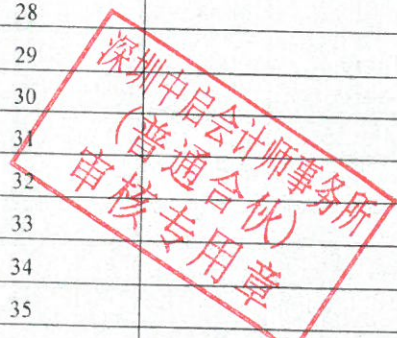 28
29
30
31
32
33
34
35
深圳中启会计师事务所
（普通合伙）
审核专用章